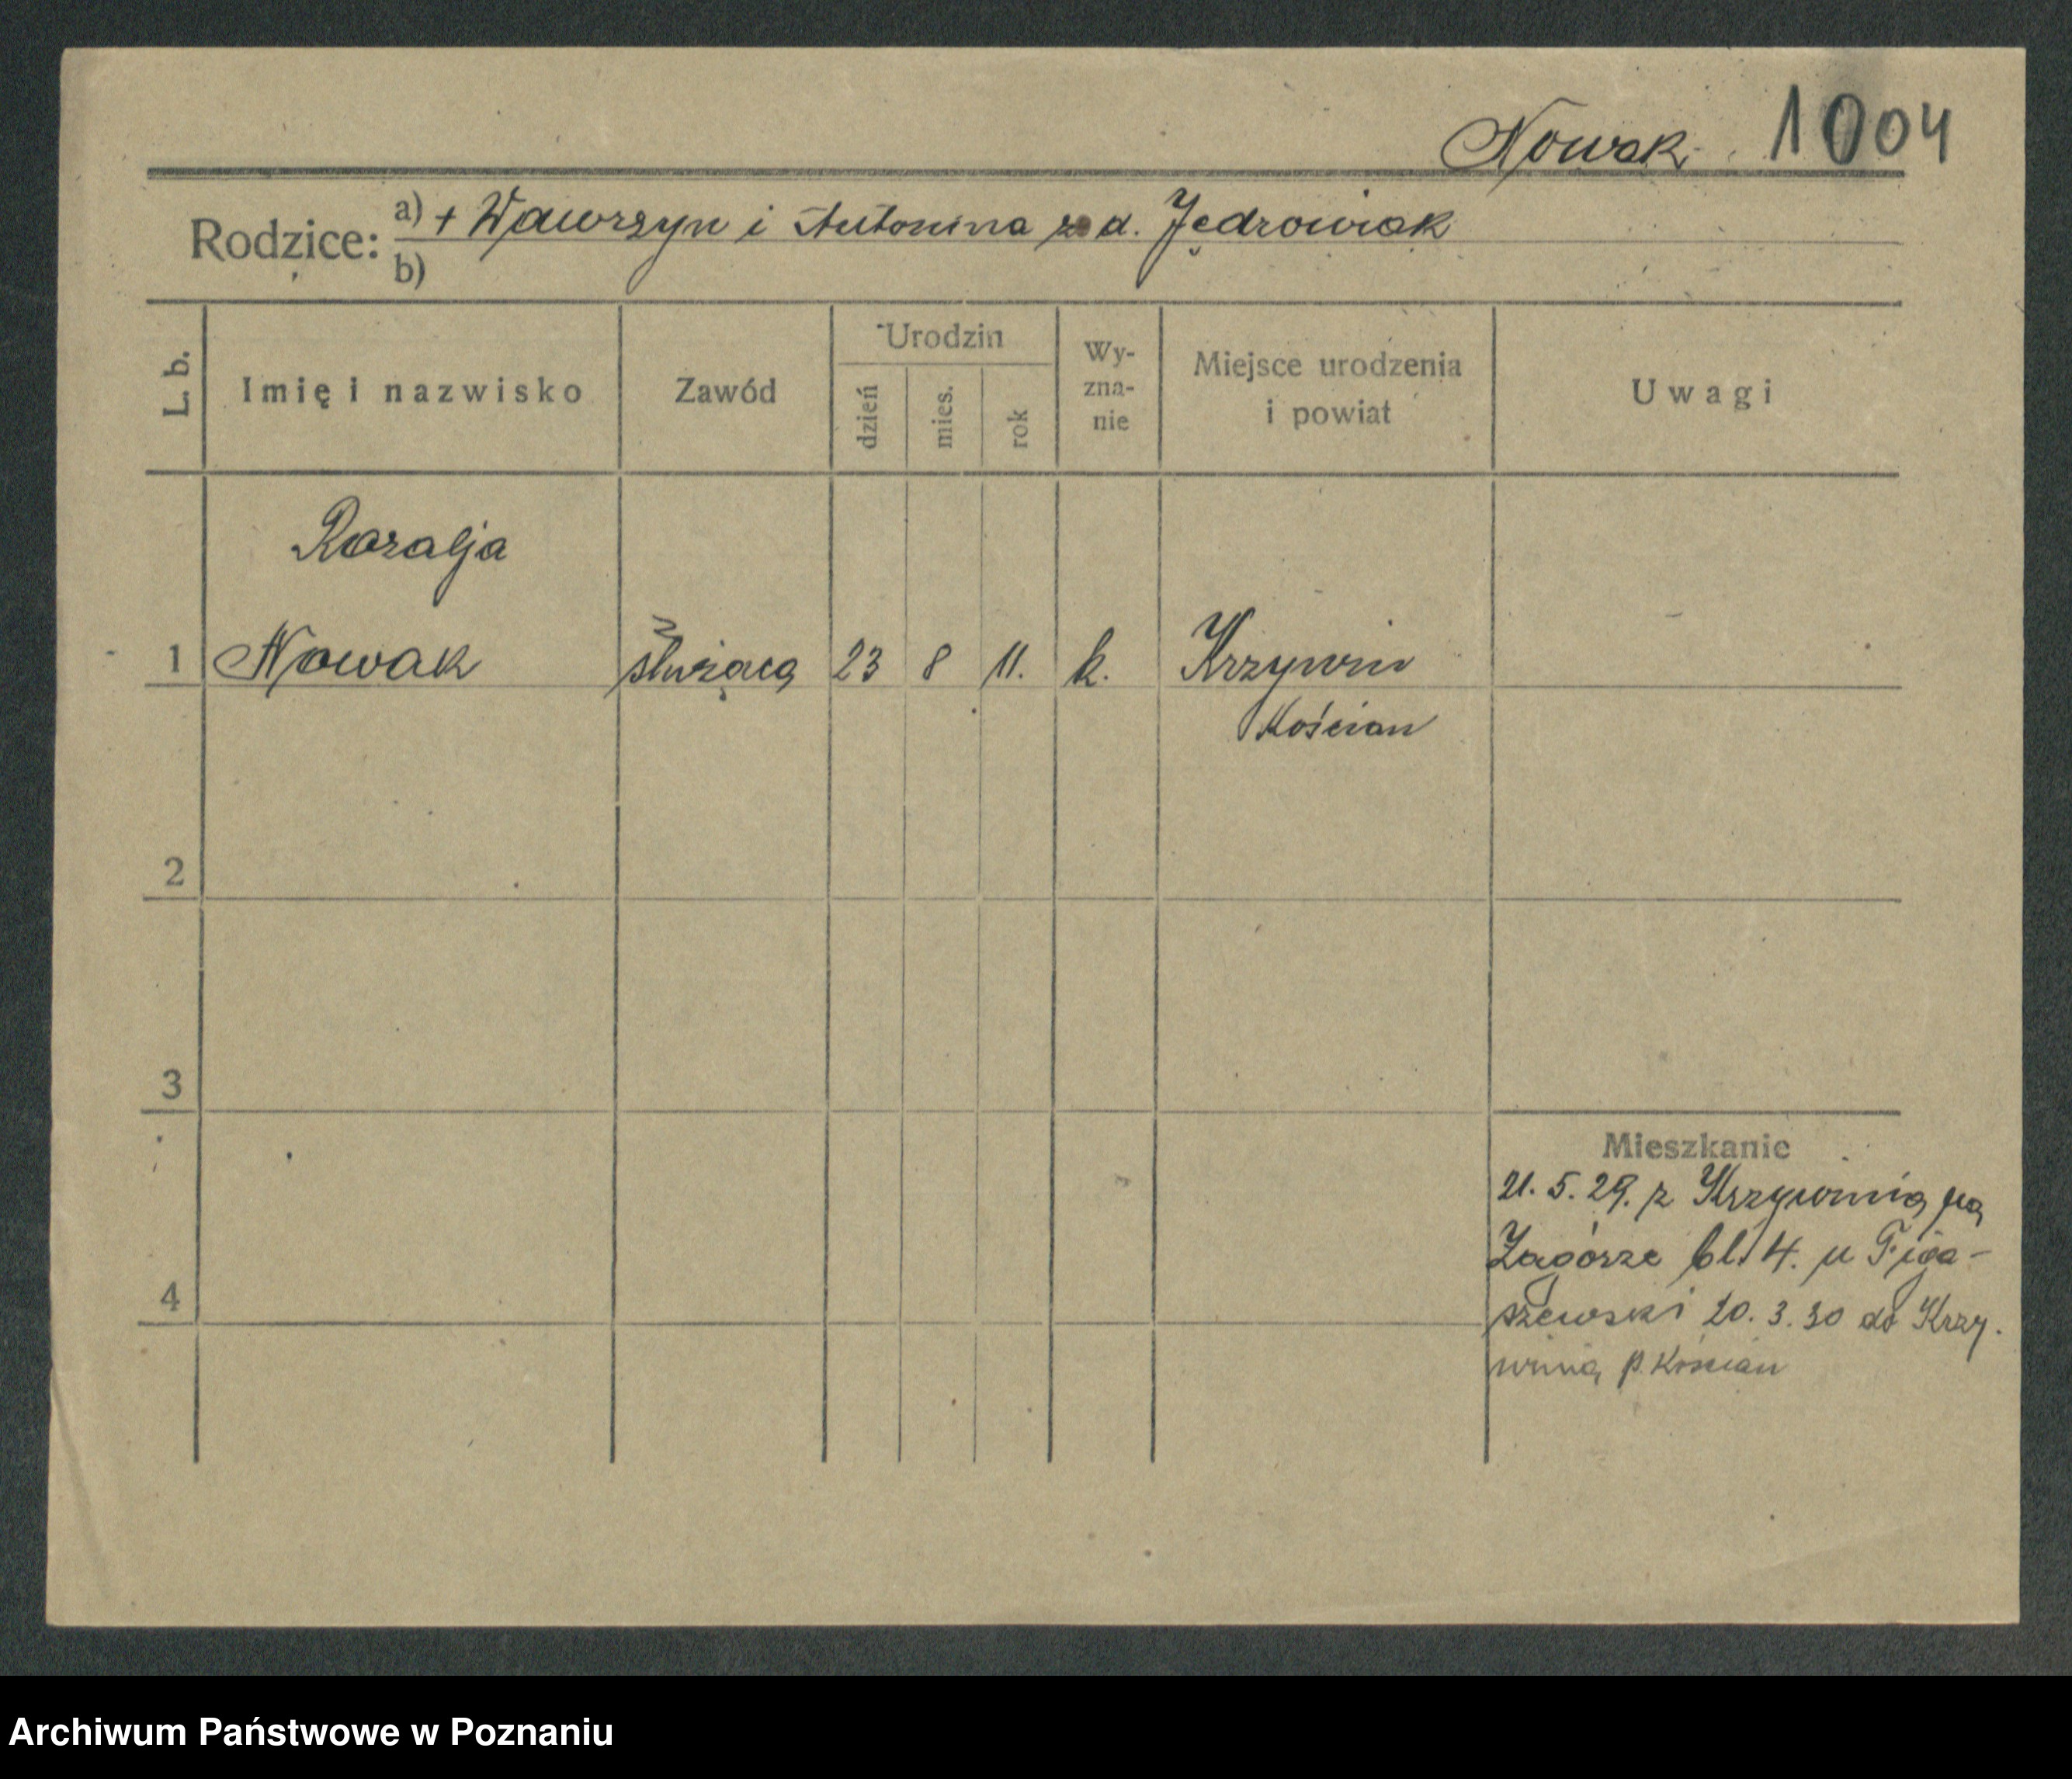 Nowak. 1004
Rodzice: a) + Wawrzyn i Antonina z d. Jędrowiak
b)
L. b. Imię i nazwisko Zawód Urodzin dzień mies. rok Wy-zna-nie Miejsce urodzenia i powiat Uwagi
Rozalja
1 Nowak służąca 23 8 11. k. Krzywiń
Kościan
2
3
Mieszkanie
21. 5. 29. z Krzywinia na
Zagórze bl. 4. u
4
szewski 20. 3. 30 do Krzy.
winia p. Kościan
Archiwum Państwowe w Poznaniu